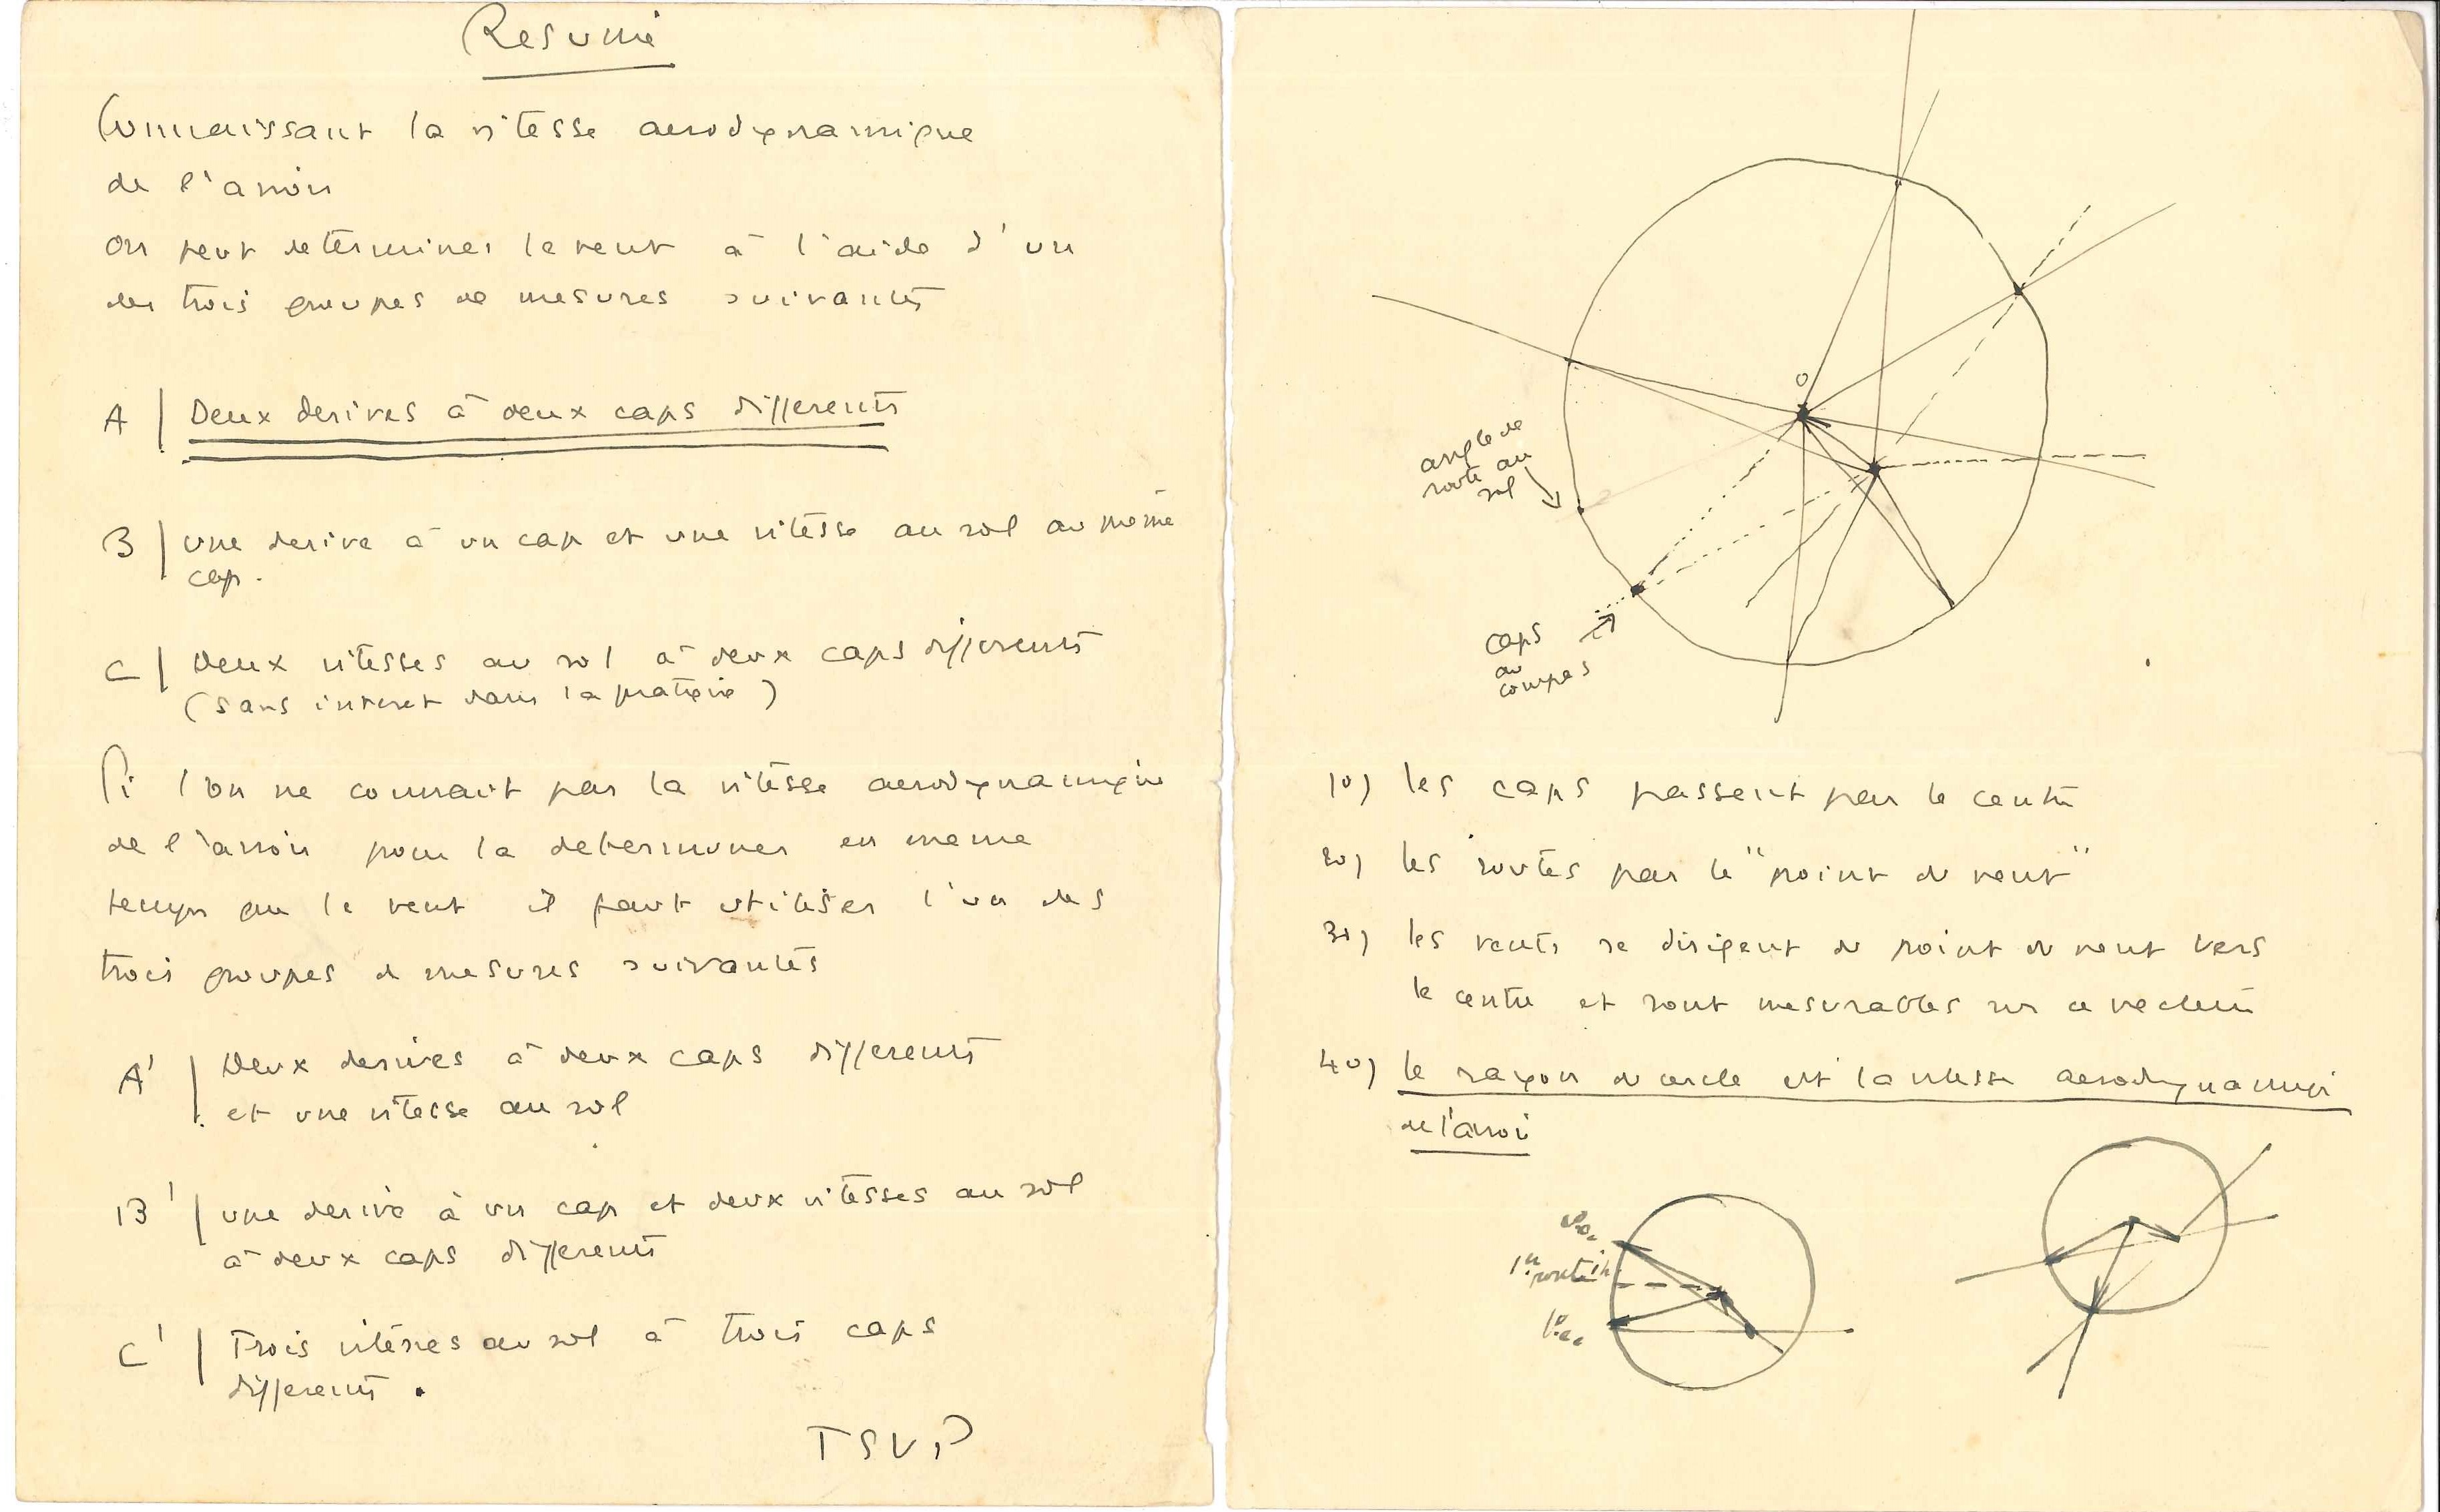 Resumé
Connaissant la vitesse aerodynamique
de l'avion
On peut determiner le vent à l'aide d'un
des trois groupes de mesures suivantes
A | Deux derives à deux caps differents
B | une derive à un cap et une vitesse au sol au même
cap.
C | Deux vitesses au sol à deux caps differents
(sans interet dans la pratique)
Si l'on ne connait pas la vitesse aerodynamique
de l'avion pour la determiner en meme
temps que le vent il faut utiliser l'un des
trois groupes de mesures suivantes
A' | Deux derives à deux caps differents
et une vitesse au sol
B' | une derive à un cap et deux vitesses au sol
à deux caps differents
C' | Trois vitesses au sol à trois caps
differents.
TSVP
O
angle de
route au
sol
caps
au
compas
1o) les caps passent par le centre
2o) les routes par le "point du vent"
3o) les vents se dirigent du point du vent vers
le centre et sont mesurables sur ce vecteur
4o) le rayon du cercle est la vitesse aerodynamique
de l'avion